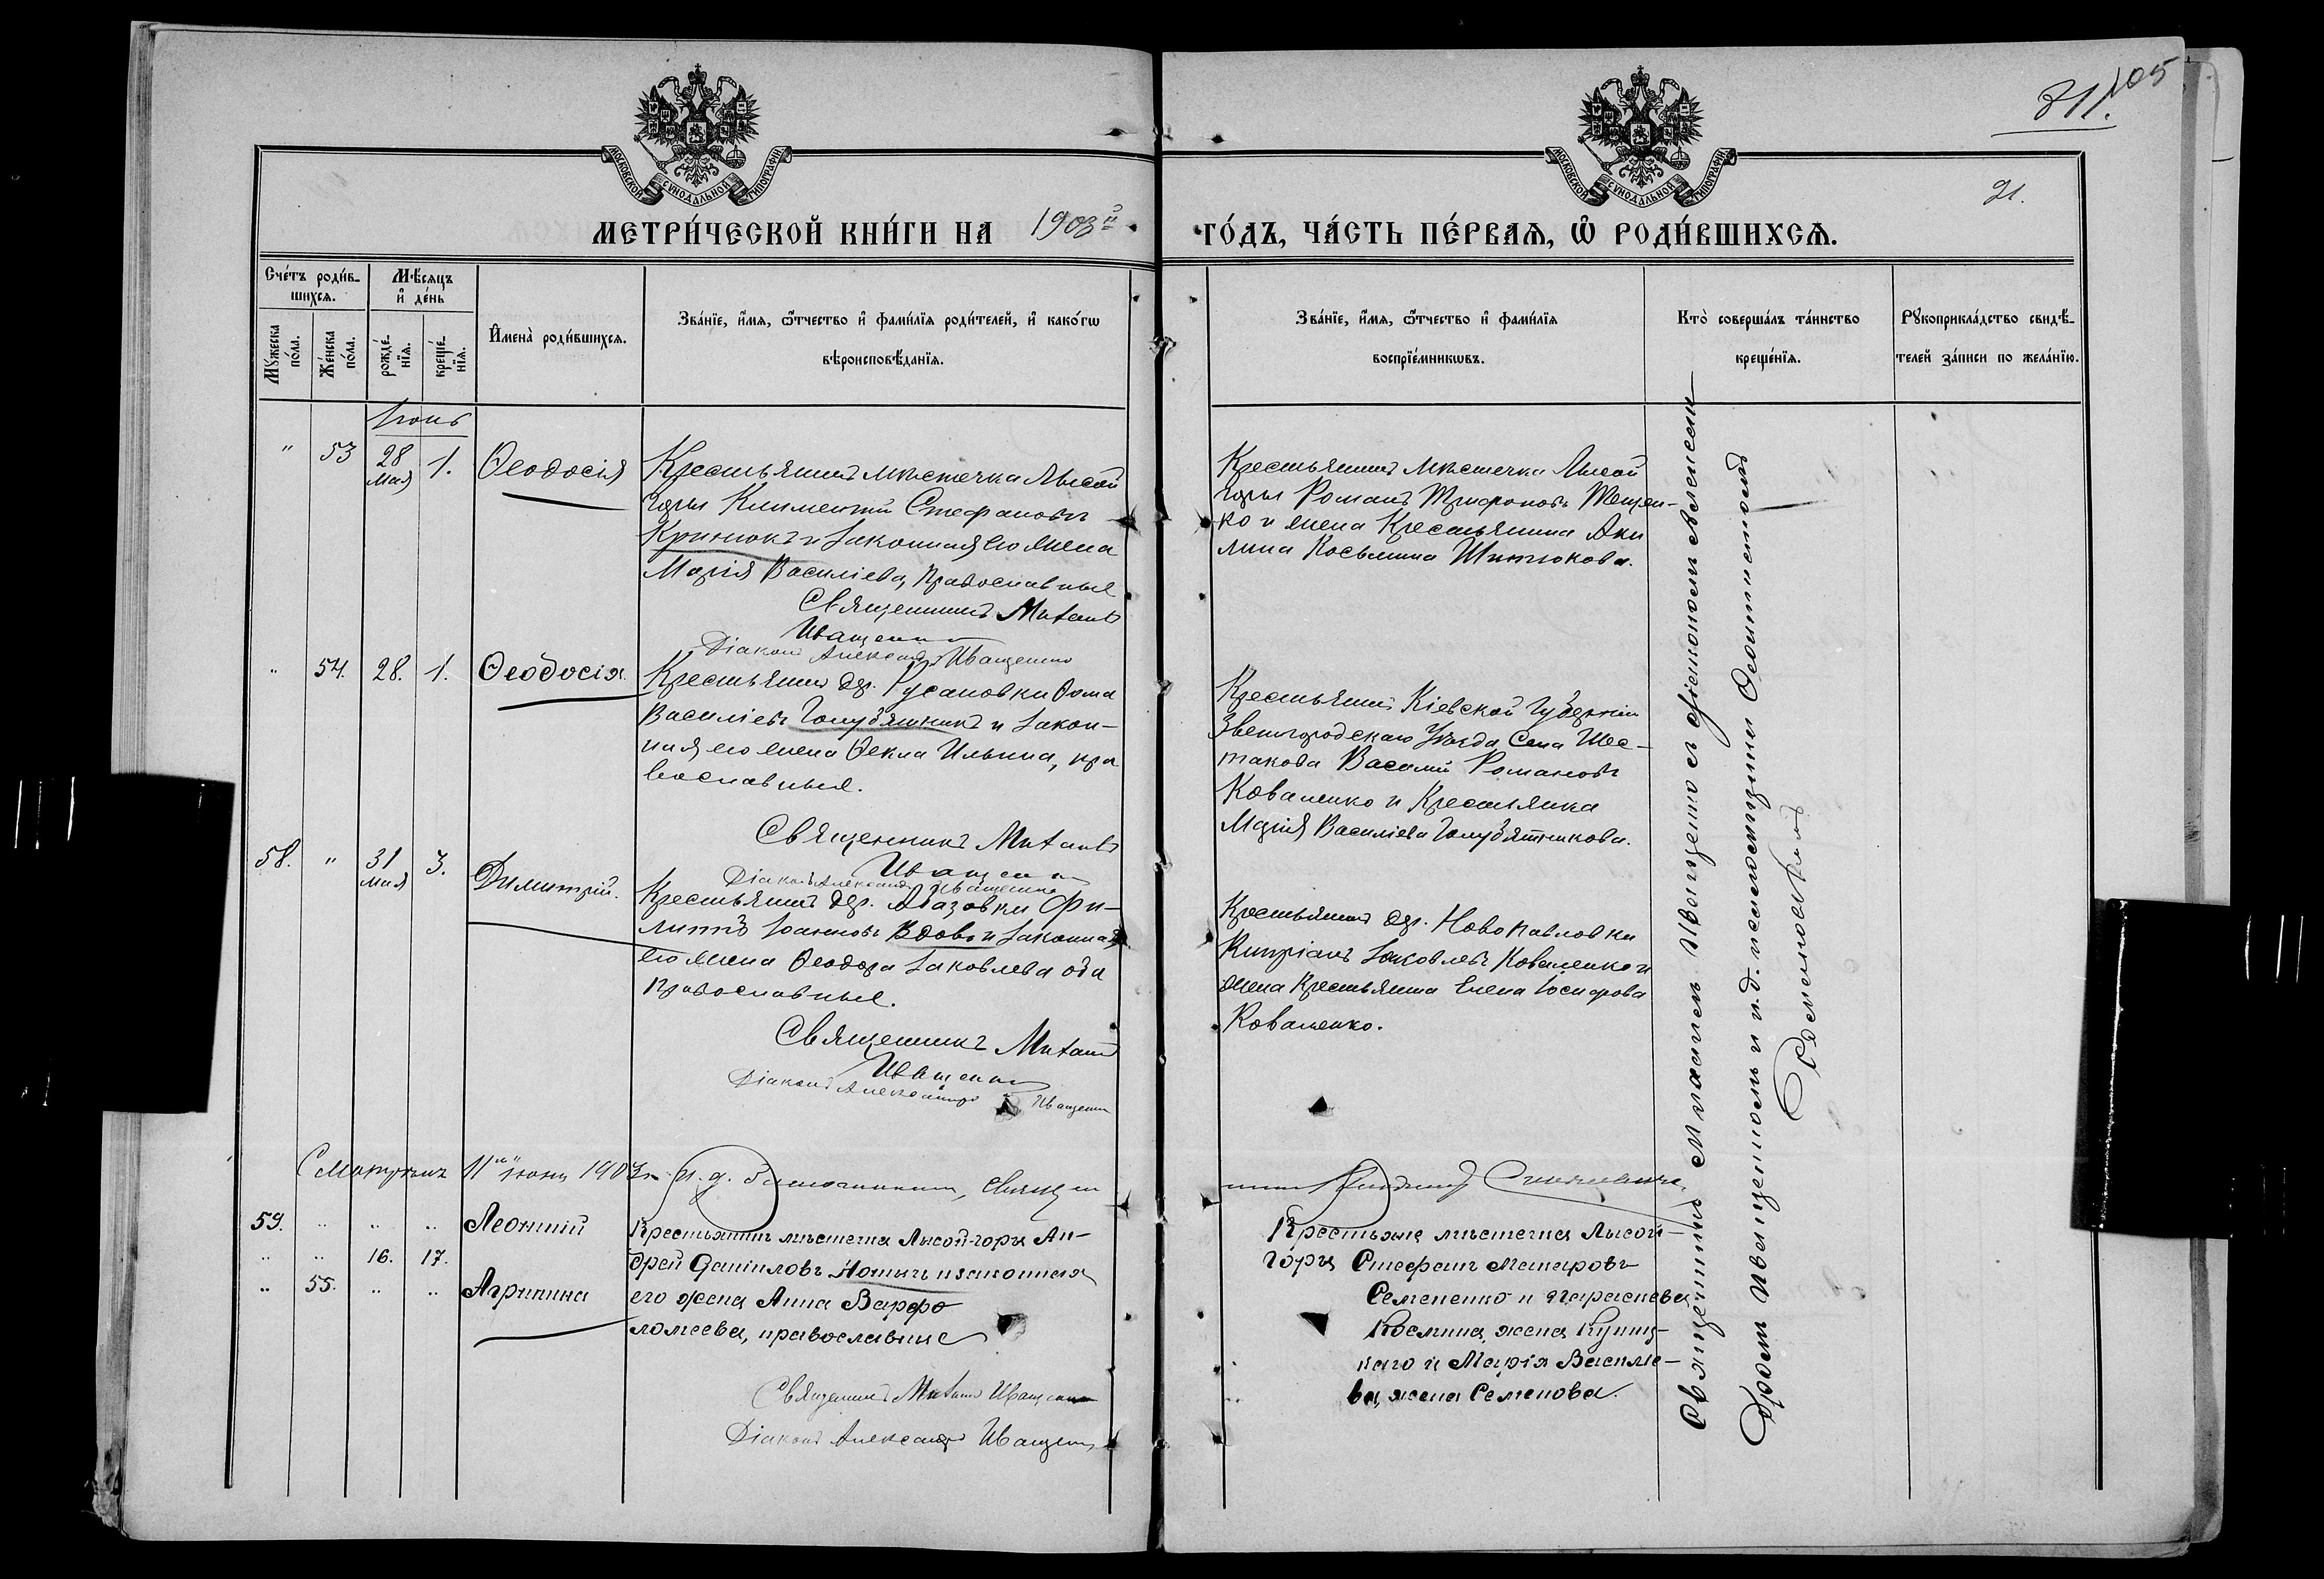 811.
105
МОСКОВСКОЙ СѴНОДАЛЬНОЙ ТИПОГРАФІИ
МОСКОВСКОЙ СѴНОДАЛЬНОЙ ТИПОГРАФІИ
21.
МЕТРИ́ЧЕСКОЙ КНИ́ГИ НА 1903й
ГО́ДЪ, ЧА́СТЬ ПЕ́РВАѦ, Ѡ РОДИ́ВШИХСѦ.
Сче́тъ роди́в-
шихсѧ.
Мѣ́сѧцъ
и҆ де́нь
Мꙋ́жеска
по́ла.
Же́нска
по́ла.
рожде́-
нїѧ.
креще́-
нїѧ.
И҆мена̀ роди́вшихсѧ.
Зва́нїе, и҆́мѧ, ѻ҆́тчество и҆ фами́лїѧ роди́телей, и҆ како́гѡ
вѣроисповѣ́данїѧ.
Зва́нїе, и҆́мѧ, ѻ҆́тчество и҆ фами́лїѧ
воспрїе́мникѡвъ.
Кто̀ соверша́лъ та́инство
креще́нїѧ.
Рꙋкоприкла́дство свидѣ́-
телей за́писи по жела́нїю.
Іюнь
" 53 28 мая 1. Ѳеодосія
Крестьянинъ мѣстечка Лысой
Горы Климентій Стефановъ
Кринюкъ и законная его жена
Марія Василіева, православные
Священникъ Михаилъ
Иващенко
Діаконъ Александръ Иващенко
Крестьянинъ мѣстечка Лысой
горы Романъ Трифоновъ Тещен-
ко и жена Крестьянина Аки
лина Косьмина Шитюкова.
" 54. 28. 1. Ѳеодосія.
Крестьянинъ дер. Русановки Ѳома
Василіевъ Голубятникъ и закон-
ная его жена Ѳекла Ильина, пра
вославные.
Священникъ Михаилъ
Иващенко
Діаконъ Александръ Иващенко
Крестьянинъ Кіевской Губерніи
Звенигородскаго Уѣзда Села Шес-
такова Василій Романовъ
Коваленко и Крестьянка
Марія Василіева Голубятникова.
58. " 31 мая 3. Димитрій.
Крестьянинъ дер. Лазовки Фи-
липпъ Іоанновъ Вдовъ и законная
его жена Ѳеодора Іаковлева оба
православные.
Священникъ Михаилъ
Иващенко
Діаконъ Александръ Иващенко
Крестьянинъ дер. Новопавловки
Кипріанъ Іаковлевъ Коваленко и
жена Крестьянина Елена Іосифова
Коваленко.
Смотрѣлъ 11го іюня 1903 г. и. д. Благочиннаго, Священ
59. " " " Леонтій
" " 16. 17.
" 55. " " Агрипина
Крестьянинъ мѣстечка Лысой-горы Ан-
дрей Даніиловъ Номычъ и законная
его жена Анна Варфо
ломеева, православные
Священникъ Михаилъ Иващенко
Діаконъ Александръ Иващенко
Крестьяне мѣстечка Лысой-
горы Стефанъ Макаровъ
Семененко и Параскева
Косьмина, жена Куниц-
каго и Марія Василіе-
ва, жена Семенова.
Священникъ Михаилъ Иващенко съ діакономъ Александ-
ромъ Иващенкомъ и и. д. псаломщика